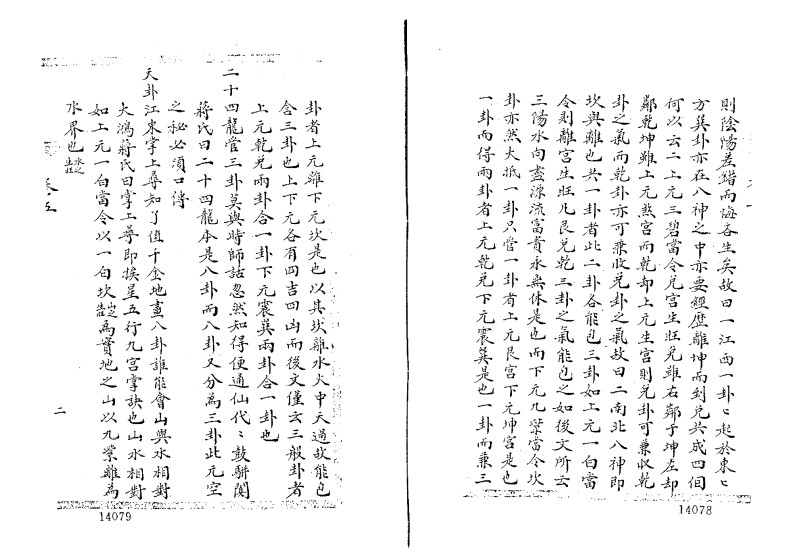 則陰陽差錯而悔吝生矣故曰一江西一卦〻起於東〻
方巽卦亦在八神之中亦要經歷離坤而到兌共成四個
何以云二上元三碧當令兌宮生旺兌雖右鄰于坤左却
鄰乾坤雖上元煞宮而乾却上元生宮則兌卦可兼收乾
卦之氣而乾卦亦可兼收兌卦之氣故曰二南北八神即
坎與離也共一卦者此二卦合能包三卦如上元一白當
令則離宮生旺凡艮兌乾三卦之氣能包之如後文所云
三陽水向盡源流富貴永無休是也而下元九紫當令坎
卦亦然大抵一卦只管一卦者上元艮宮下元坤宮是也
一卦而得兩卦者上元乾兌下元震巽是也一卦而兼三
14078
卦者上元離下元坎是也以其坎離水火中天過故能包
含三卦也上下元各有四吉四凶而後文僅云三般卦者
上元乾兌兩卦合一卦下元震巽兩卦合一卦也
二十四龍管三卦莫與時師話忽然知得便通仙代〻鼓駢闐
蔣氏曰二十四龍本是八卦而八卦又分為三卦此元空
之秘必須口傳
天卦江東掌上尋知了值千金地畫八卦誰能會山與水相對
大鴻蔣氏曰掌上尋即挨星五行九宮掌訣也山水相對
如上元一白當令以一白坎為實地之山以九紫離為
水界也水之生旺
卷五
二
14079